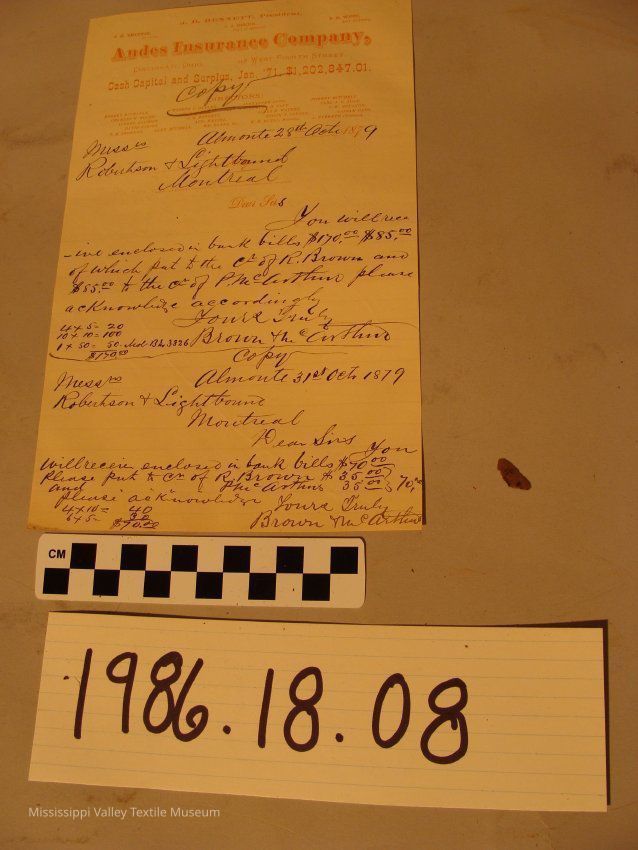 J. B. BENNETT, President.
Andes Insurance Company,
CINCINNATI, OHIO. WEST FOURTH STREET.
Cash Capital and Surplus, Jan. '71, $1,202,847.01.
Copy
DIRECTORS:
Almonte 28th Oct. 1879
Messrs
Robertson & Lightbound
Montreal
Dear Sirs
You will rece
-ive enclosed in bank bills $170.00 $85.00
of which put to the Cr of R. Brown and
$85.00 to the Cr of P. McArthur please
acknowledge accordingly
4 x 5 = 20
Yours Truly
10 x 10 = 100
1 x 50 = 50
Brown & McArthur
$170.00
Copy
Messrs
Almonte 31st Oct. 1879
Robertson & Lightbound
Montreal
Dear Sirs
You
will receive enclosed in bank bills $70.00
Please put to Cr of R. Brown $ 35.00
and P. McArthur 35.00 70.00
please acknowledge
4 x 10 = 40
Yours Truly
6 x 5 = 30
Brown & McArthur
$70.00
CM
1986.18.08
Mississippi Valley Textile Museum